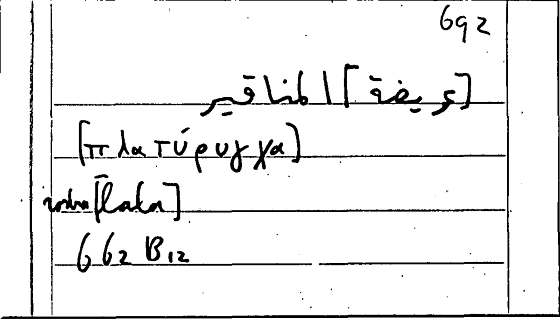 692
[عريضة] المناقير
[πλατύρυγχα]
[lata]
662 B12